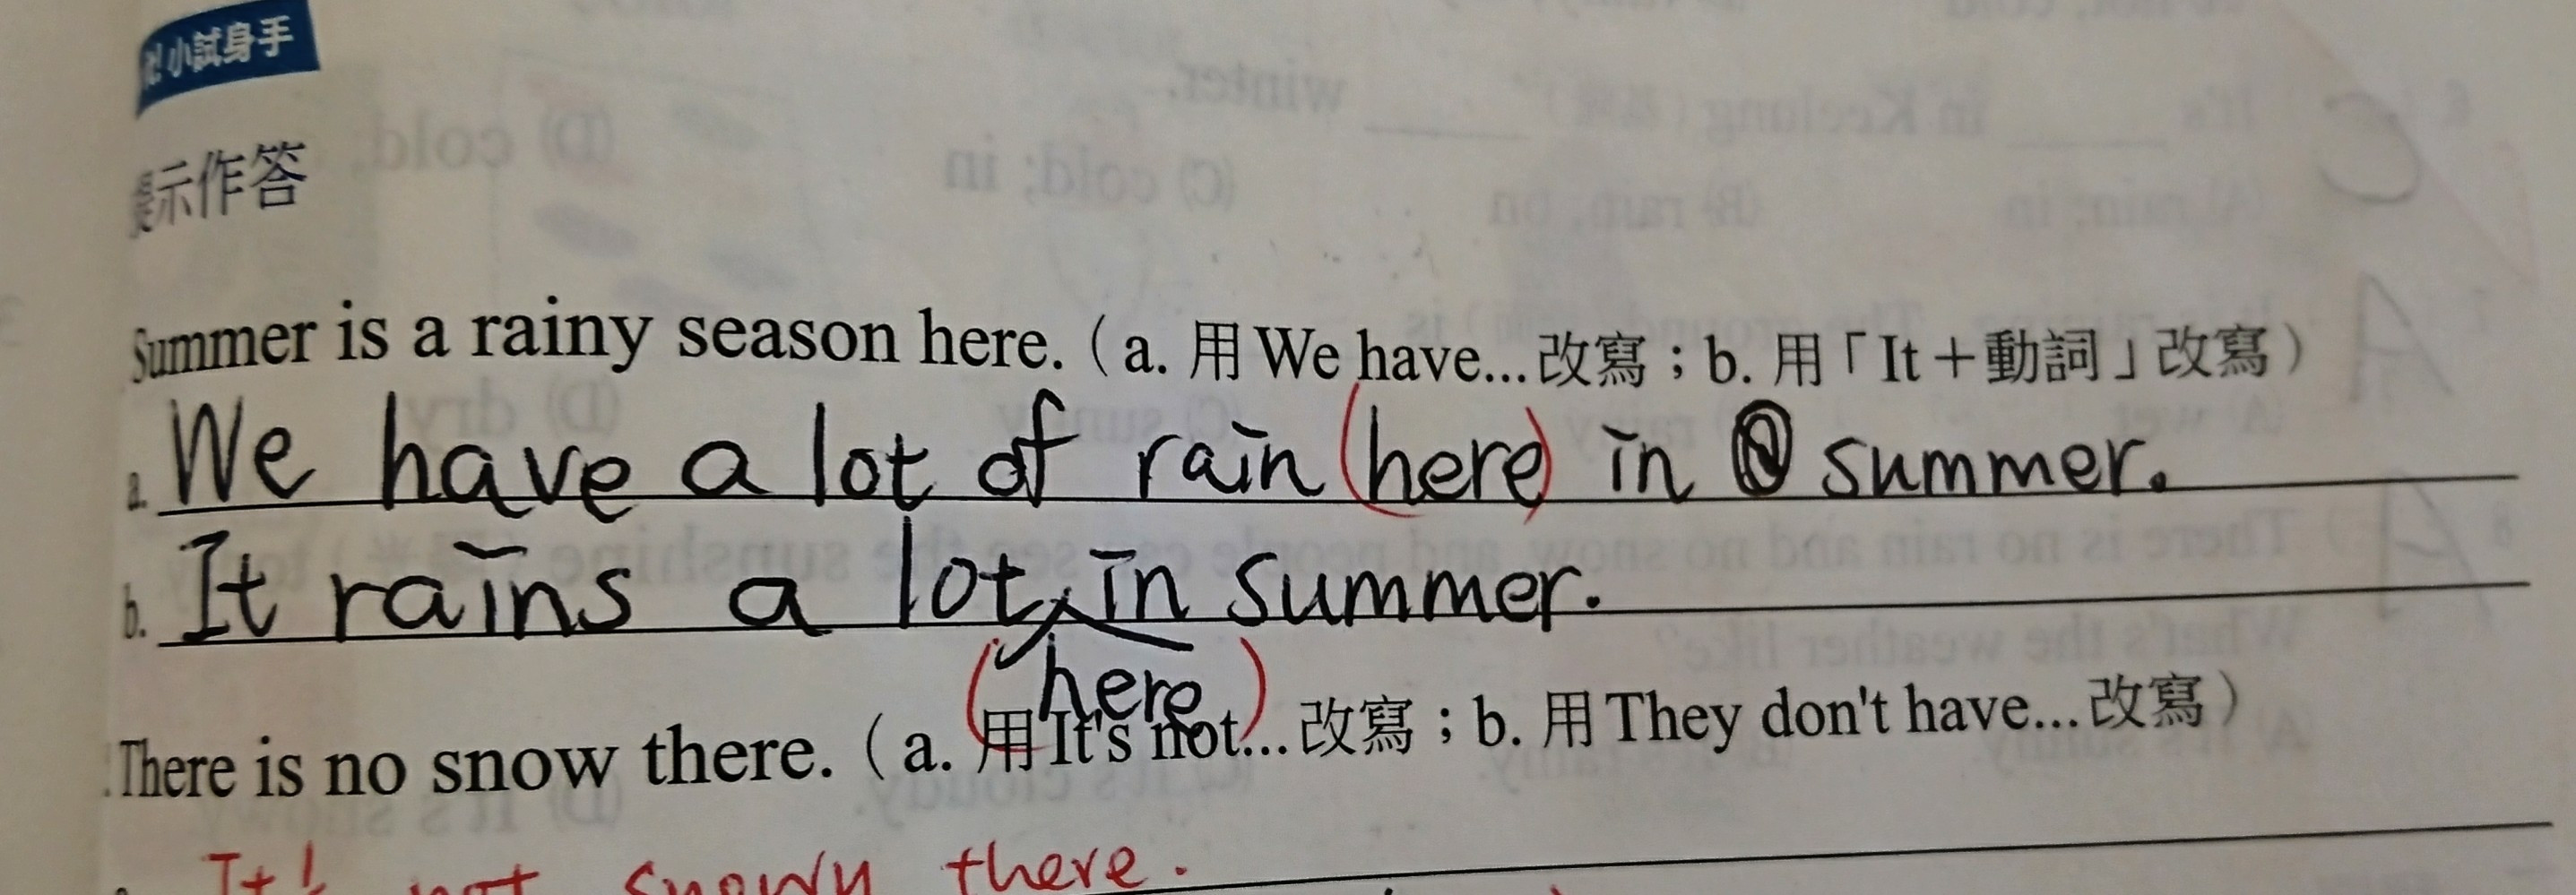 小試身手
示作答
Summer is a rainy season here.（a. 用 We have...改寫；b. 用「It＋動詞」改寫）
a. We have a lot of rain (here) in summer.
b. It rains a lot in summer.
(here)
There is no snow there.（a. 用 It's not...改寫；b. 用 They don't have...改寫）
It's not snowy there.